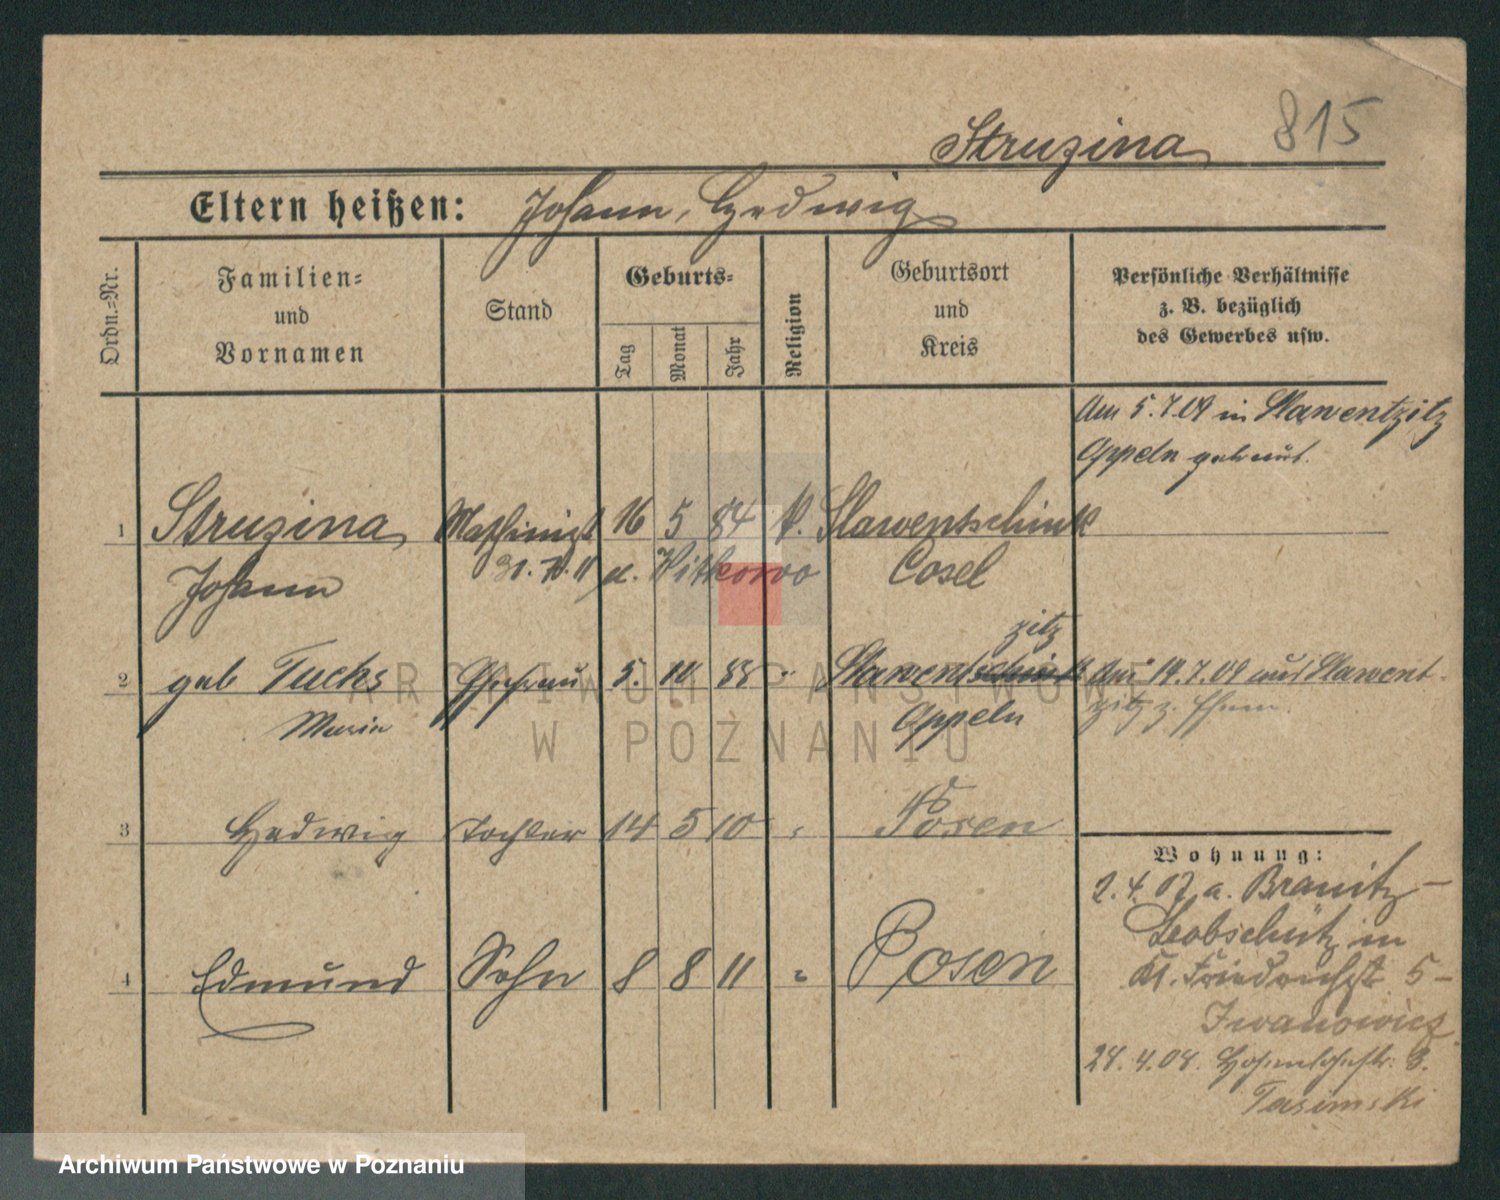 Struzina 815
Eltern heißen: Johann, Hedwig
Ordn.-Nr.
Familien-
und
Vornamen
Stand
Geburts-
Tag
Monat
Jahr
Religion
Geburtsort
und
Kreis
Persönliche Verhältnisse
z. B. bezüglich
des Gewerbes usw.
Am 5.7.09 in Slawentzitz
Oppeln getraut.
1 Struzina Maschinist 16 5 84 k. Slawentschink
Johann 31. 7. 11 n. Witkowo Cosel
zitz
2 geb Fucks Ehefrau 5. 10 88 " Slawentschink Am 19.7.09 aus Slawent-
Marie Oppeln zitz z.
3 Hedwig Tochter 14 5 10 " Posen
Wohnung:
2.4.07 a. Branitz-
Leobschütz in
Kl. Friedrichstr. 5-
Iwanowicz
4 Edmund Sohn 8 8 11 " Posen
28.4.08. 3.
Tasimski
ARCHIWUM PAŃSTWOWE
W POZNANIU
Archiwum Państwowe w Poznaniu